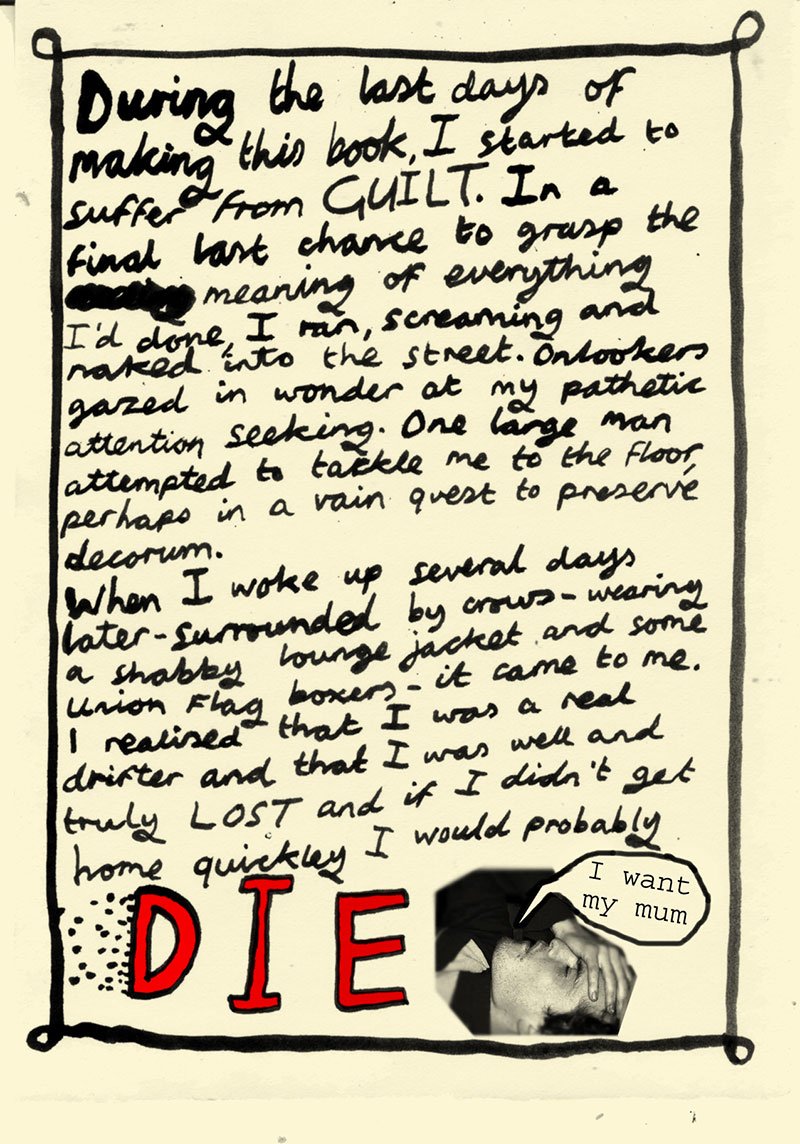 During the last days of
making this book, I started to
suffer from GUILT. In a
final last chance to grasp the
meaning of everything
I'd done, I ran, screaming and
naked into the street. Onlookers
gazed in wonder at my pathetic
attention seeking. One large man
attempted to tackle me to the floor,
perhaps in a vain quest to preserve
decorum.
When I woke up several days
later-surrounded by crows-wearing
a shabby lounge jacket and some
Union Flag boxers-it came to me.
I realised that I was a real
drifter and that I was well and
truly LOST and if I didn't get
home quickley I would probably
DIE
I want
my mum